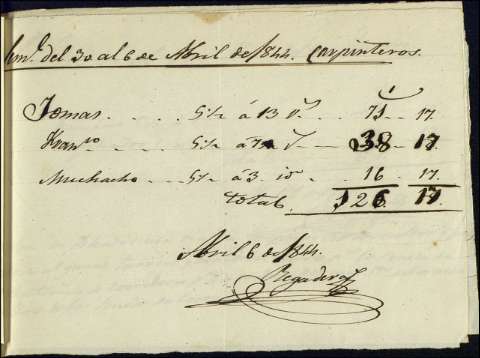 Sem.ª del 30 al 6 de Abril de 1844. Carpinteros.
Tomas. . . . 5½ á 13 r.s 71 . . 17.
Fran.co . . . 5½ á 7 38 . . 17
Muchacho . . . 5½ á 3 id 16 . . 17.
total. 126 17
Abril 6 de 1844.